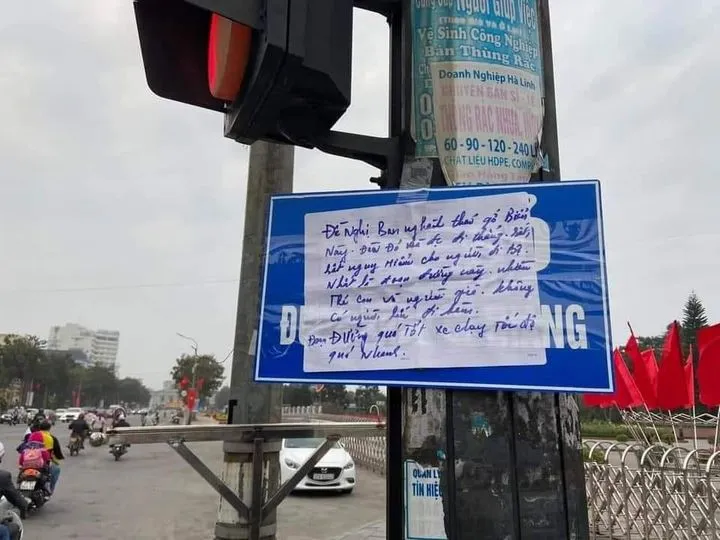 Người Giúp Việc
Vệ Sinh Công Nghiệp
Bán Thùng Rác
Doanh Nghiệp Hà Linh
CHUYÊN BÁN SỈ - LẺ
THÙNG RÁC NHỰA,
60 - 90 - 120 - 240 L
CHẤT LIỆU HDPE, COMPO
Đề Nghị Ban nghành tháo gỡ Biển
Này. Đèn Đỏ đi thẳng. Rất,
rất nguy Hiểm cho người đi bộ.
Nhất là đoạn đường này. nhiều
Trẻ con và người già. không
Có người, lái đi kèm.
Đoạn Đường quá Tốt xe chạy Tốc độ
quá nhanh.
NG
QUẢN LÝ
TÍN HIỆU